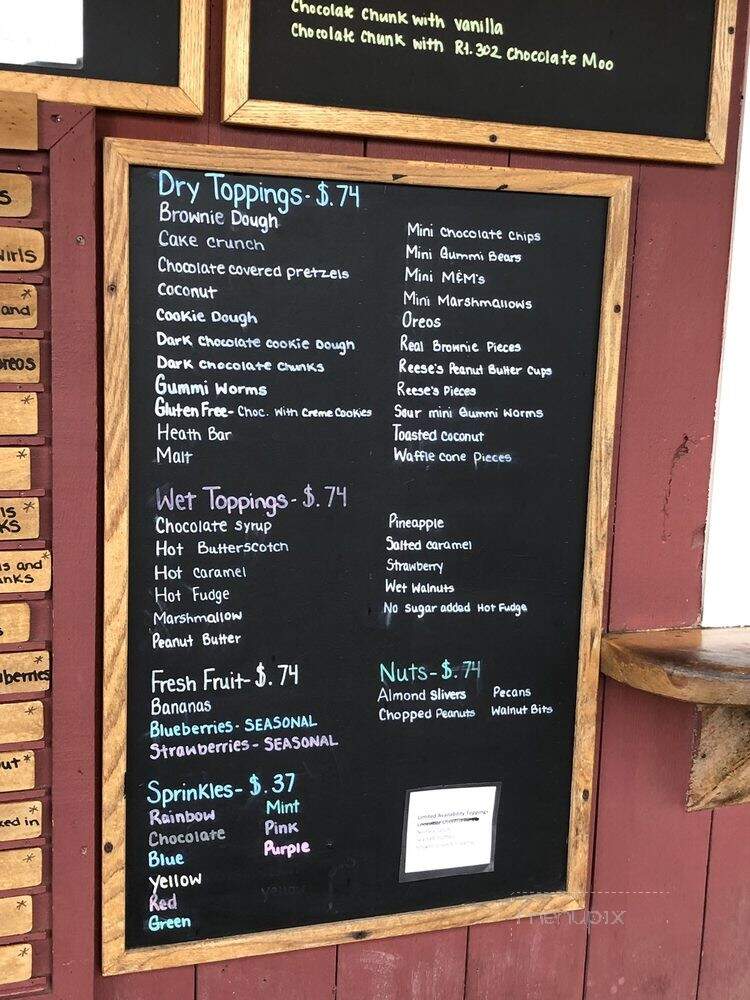 Chocolate Chunk with vanilla
Chocolate Chunk with Rt. 302 Chocolate Moo
Dry Toppings- $.74
Brownie Dough
Cake crunch
Chocolate covered pretzels
Coconut
Cookie Dough
Dark Chocolate cookie Dough
Dark chocolate chunks
Gummi Worms
Gluten Free- Choc. With Creme Cookies
Heath Bar
Malt
Mini Chocolate Chips
Mini Gummi Bears
Mini M&M's
Mini Marshmallows
Oreos
Real Brownie Pieces
Reese's Peanut Butter Cups
Reese's Pieces
Sour mini Gummi Worms
Toasted coconut
Waffle cone pieces
Wet Toppings- $.74
Chocolate Syrup
Hot Butterscotch
Hot caramel
Hot Fudge
Marshmallow
Peanut Butter
Pineapple
Salted caramel
Strawberry
Wet Walnuts
No sugar added Hot Fudge
Fresh Fruit- $.74
Bananas
Blueberries- SEASONAL
Strawberries - SEASONAL
Nuts- $.74
Almond Slivers Pecans
Chopped Peanuts Walnut Bits
Sprinkles- $.37
Rainbow
Chocolate
Blue
Yellow
Red
Green
Mint
Pink
Purple
yellow
Limited Availability Toppings
irls
and
reos
s and*
nks
berries
ut*
ked in
menupix